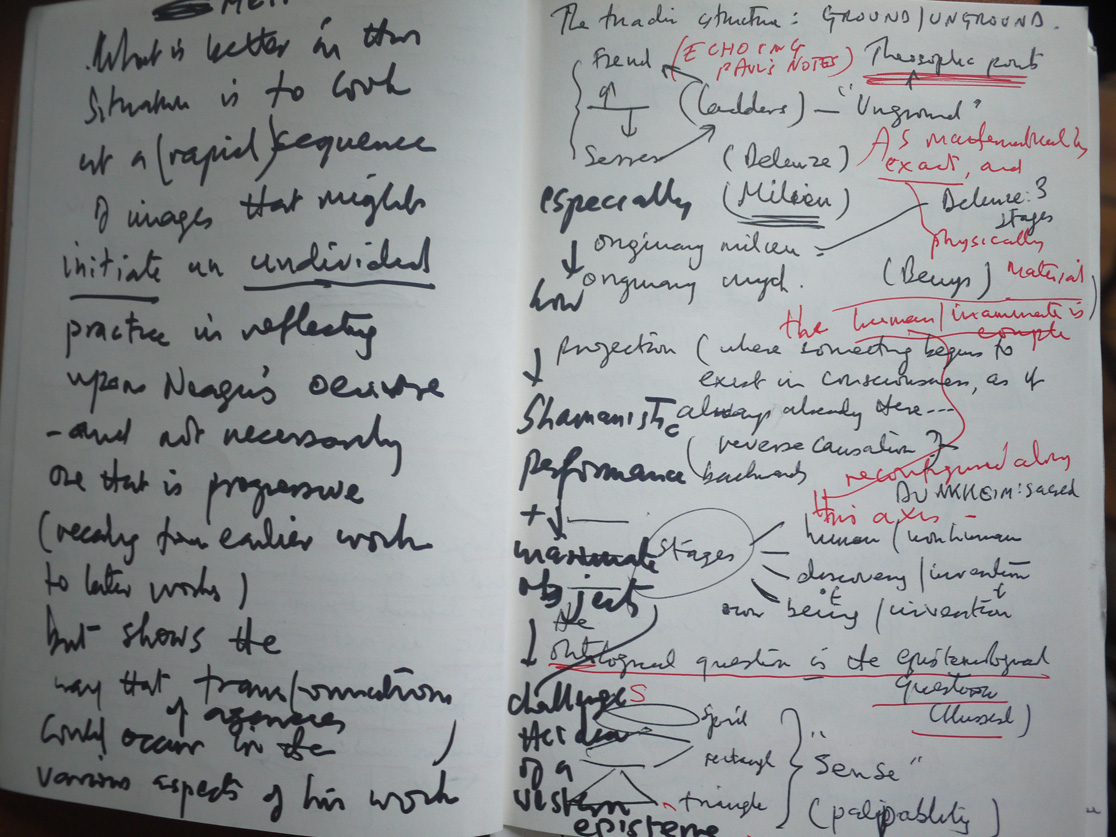 What is better in this
situation is to look
at a (rapid) sequence
of images that might
initiate an undivided
practice in reflecting
upon Neagu's oeuvre
- and not necessarily
one that is progressive
( from earlier work
to later works )
but shows the
way that transformations
of agencies
could occur in the
various aspects of his work )
The triadic structure : GROUND / UNGROUND.
Freud (ECHOING PAUL'S NOTES) Theosophic points
(Ladders) - "Unground"
Serres (Deleuze) As mathematically
exact, and
especially (Milieu) Deleuze: 3
stages
originary milieu physically
originary (Beuys) material
how the human/inanimate is
projection (where something begins to
exist in consciousness, as if
Shamanistic always already there ---
performance (reverse causation ?
backwards reconfigured along
DURKHEIM: sacred
this axis -
+ stages human / nonhuman
inanimate discovery / invention
object own being / invention
the
ontological question is the epistemological
question
challenges (Husserl)
the idea spiral
of a rectangle "Sense"
western triangle (palpability)
episteme